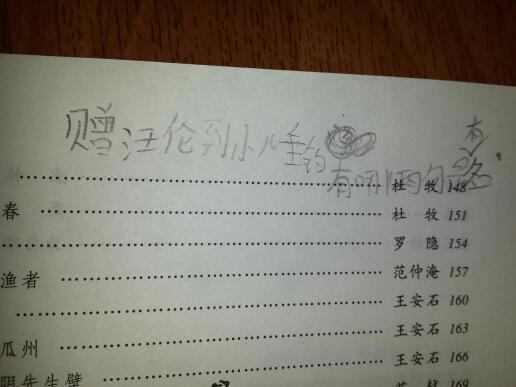 赠汪伦到小儿垂钓
有哪两句最有名
杜 牧 148
春 杜 牧 151
罗 隐 154
渔者 范仲淹 157
王安石 160
王安石 163
瓜州 王安石 166
阴先生壁 苏 轼 169